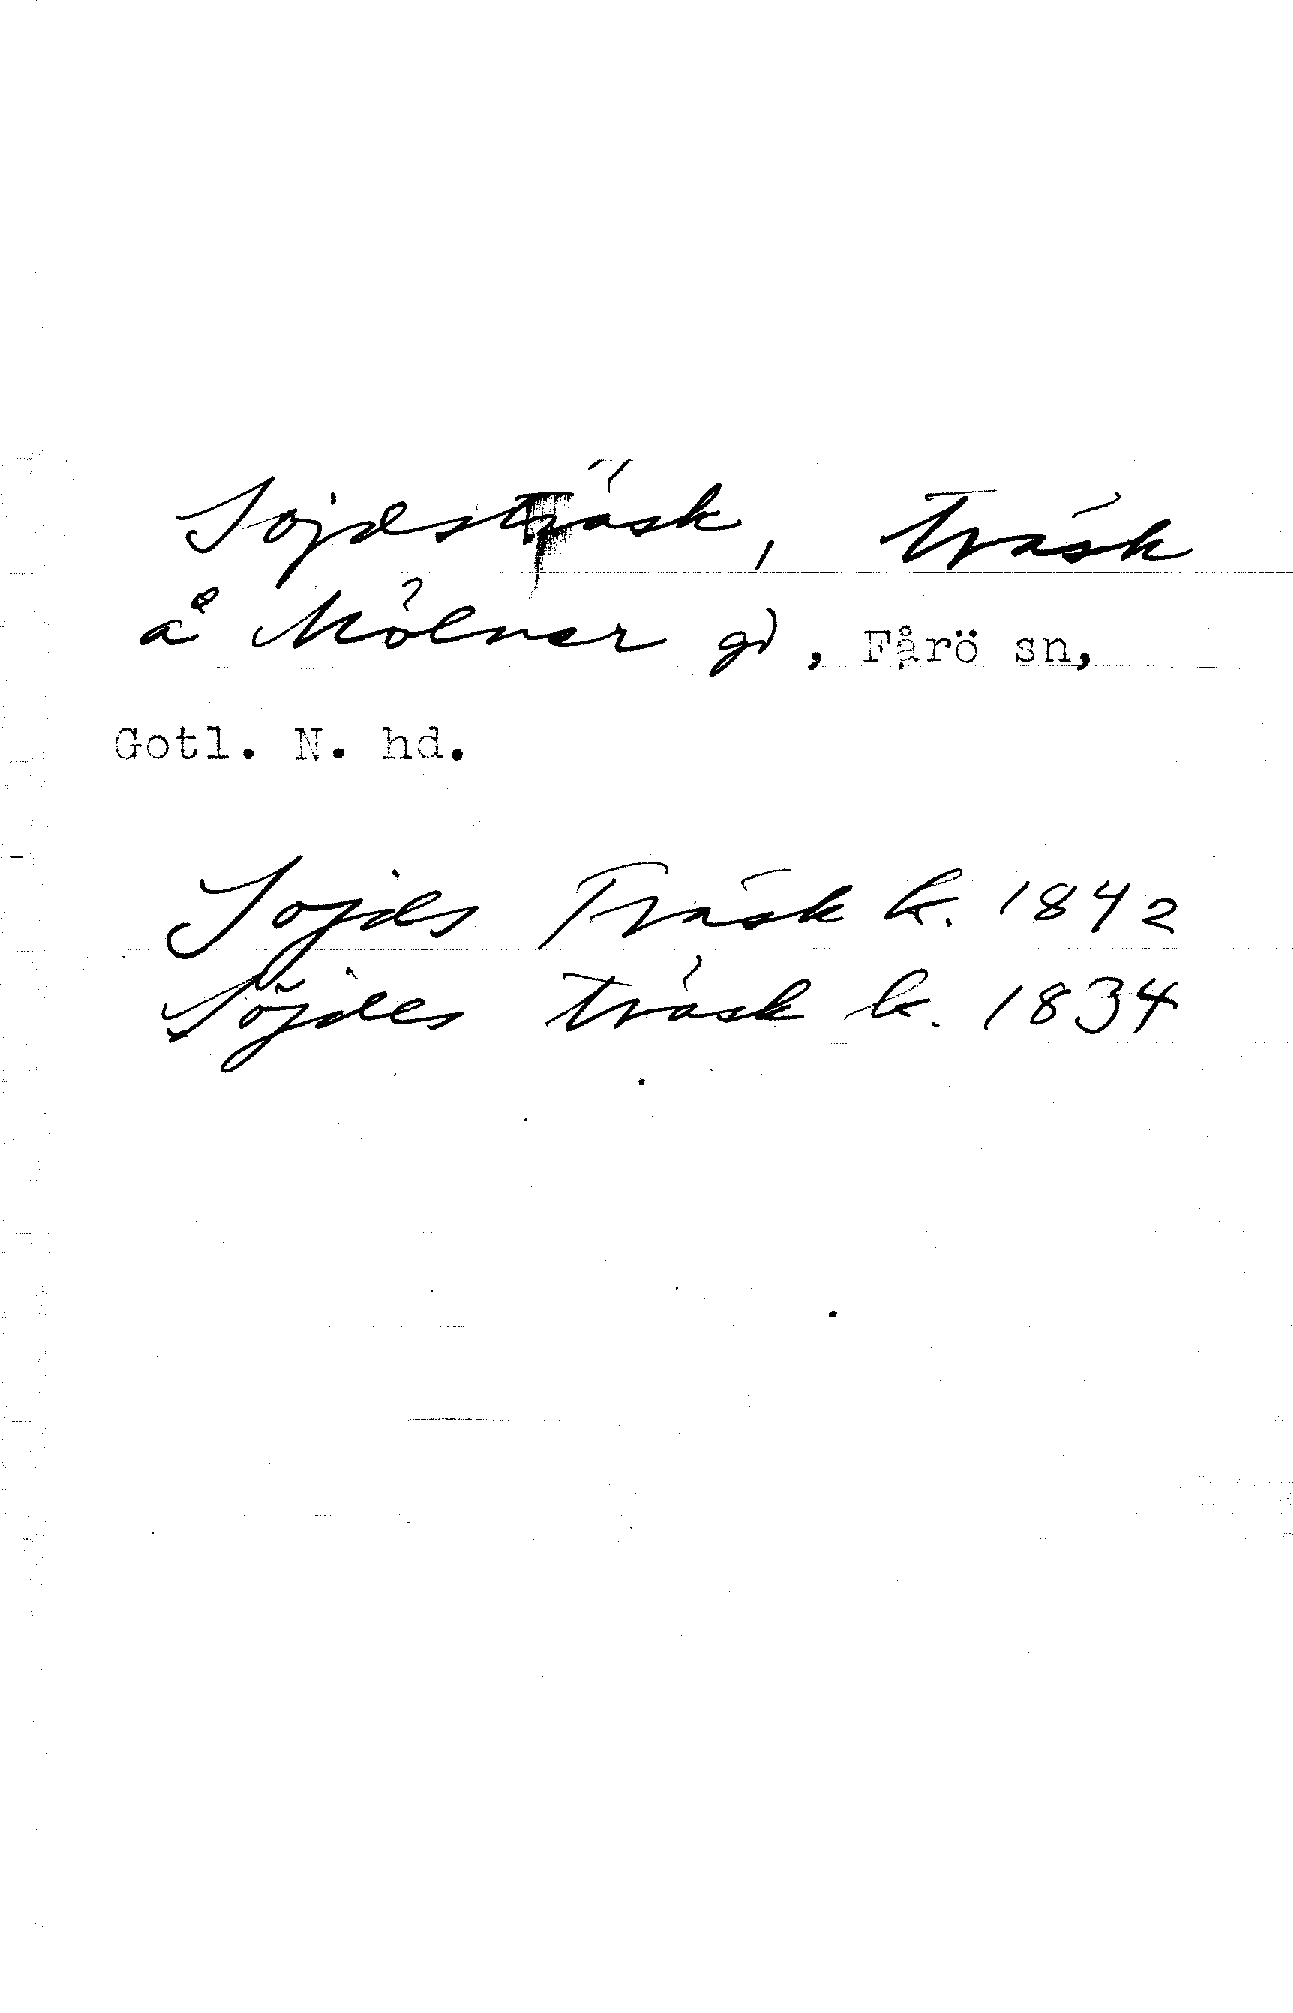 Sojdsträsk, träsk
å Mölner gd, Fårö sn,
Gotl. N. hd.
Sojds Träsk k. 1842
Söjdes träsk k. 1834